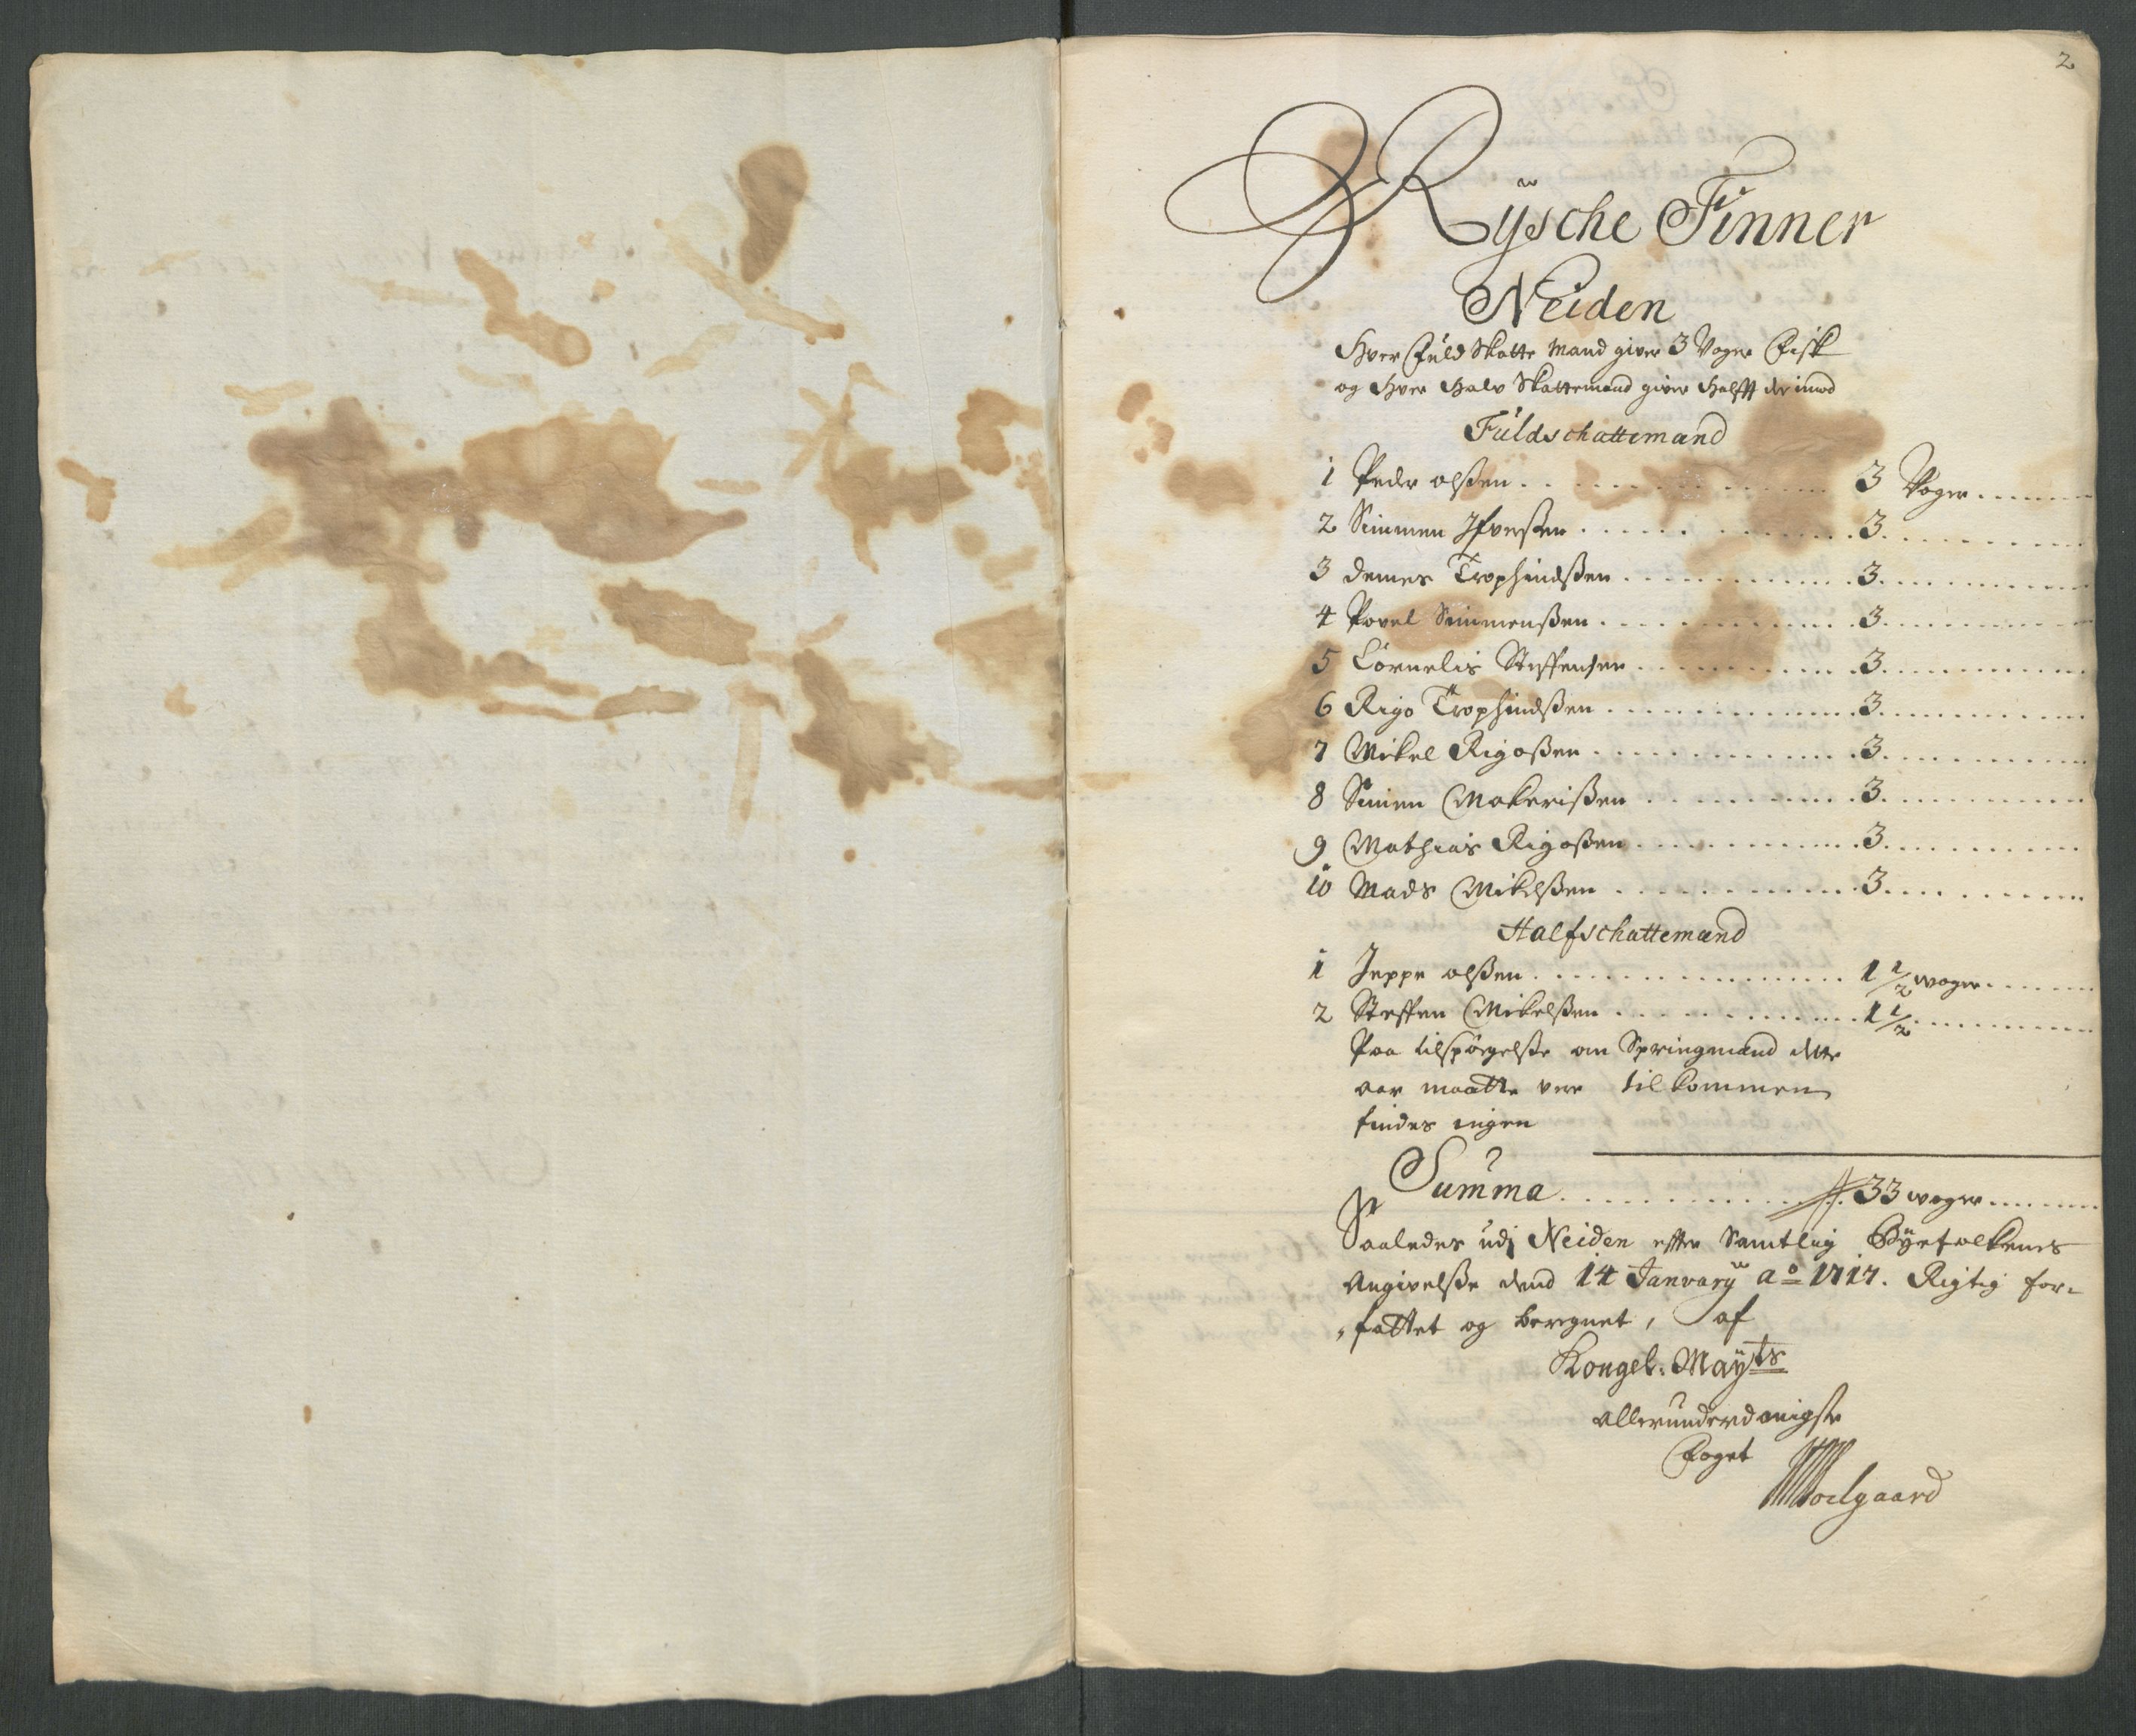 2
Rÿsche Finner
Neiden
Hver Fuld Skatte Mand giver 3 Voger Fisk
og Hver Halv Skattemand giver Halfft derimod
Fuldschattemænd
1 Peder olßen . . . 3 Voger
2 Simmen Ifverßen . . . 3
3 Demes Trophindßen . . . 3
4 Povel Simmenßen . . . 3
5 Cornelis Steffensen . . . 3
6 Rigo Trophindßen . . . 3
7 Mikel Rigoßen . . . 3
8 Simen Makerißen . . . 3
9 Mathias Rigoßen . . . 3
10 Mads Mikelßen . . . 3
Halfschattemænd
1 Jeppe olßen . . . 1 1/2 woger
2 Steffen Mikelßen . . . 1 1/2
Paa tilspørgelße om Springmænd dette
aar maatte vere tilkommen
findes ingen
Summa . . . 33 woger
Saaledes udj Neiden efter Samtlig Bÿefolkenes
Angivelße dend 14 Januarÿ ao 1717. Rigtig for-
fattet og beregnet, af
Kongel: Maÿts
allerunderdanigste
Foget